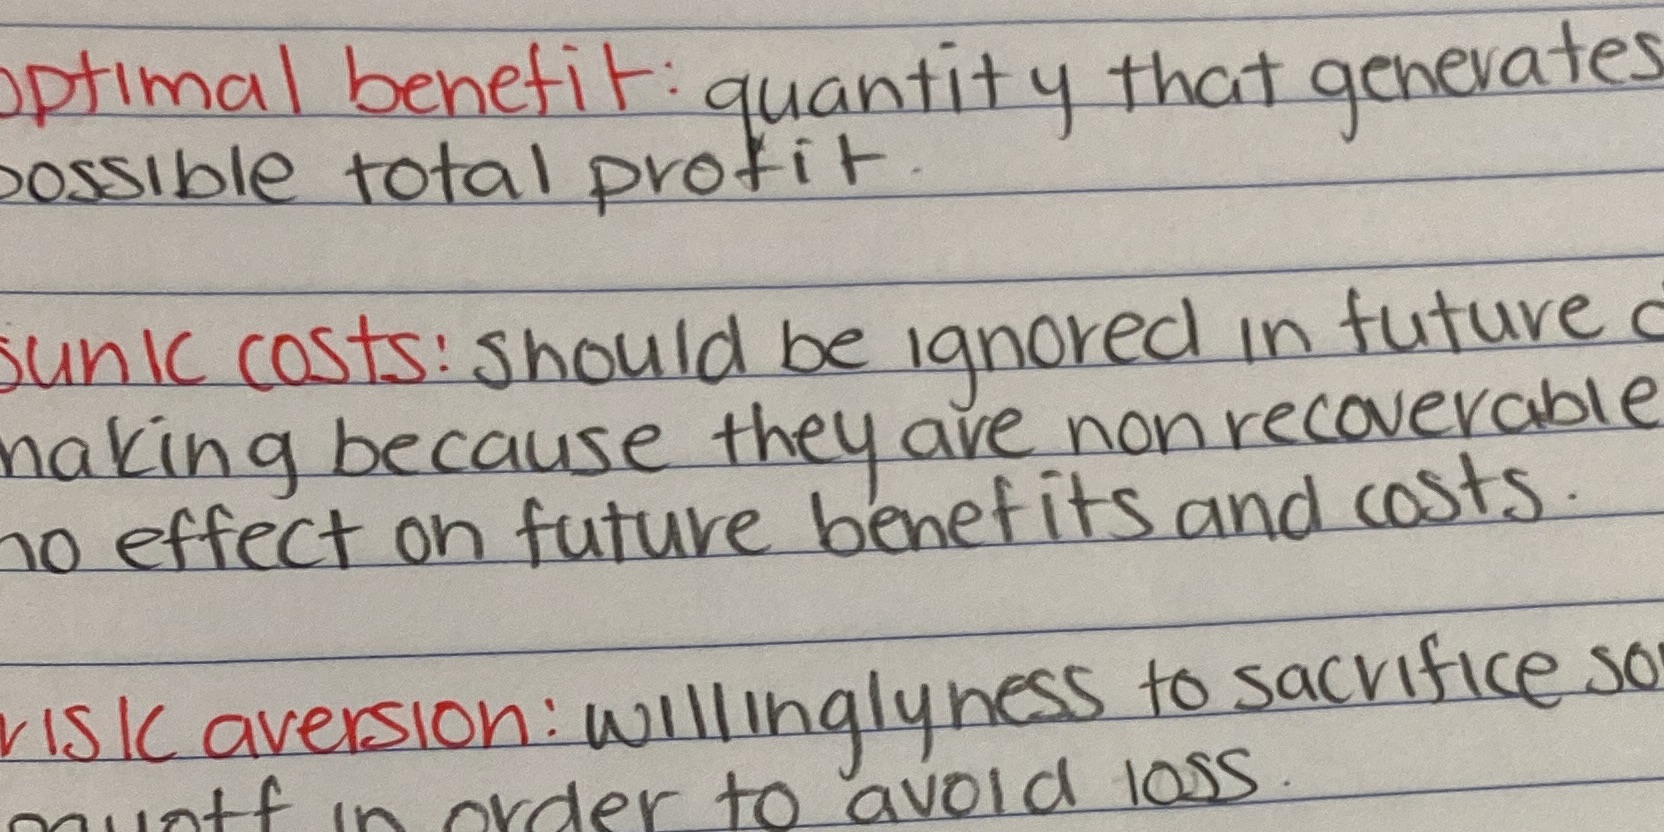 optimal benefit: quantity that generates
possible total profit.
sunk costs: should be ignored in future
making because they are nonrecoverable
no effect on future benefits and costs.
risk aversion: willinglyness to sacrifice
payoff in order to avoid loss.